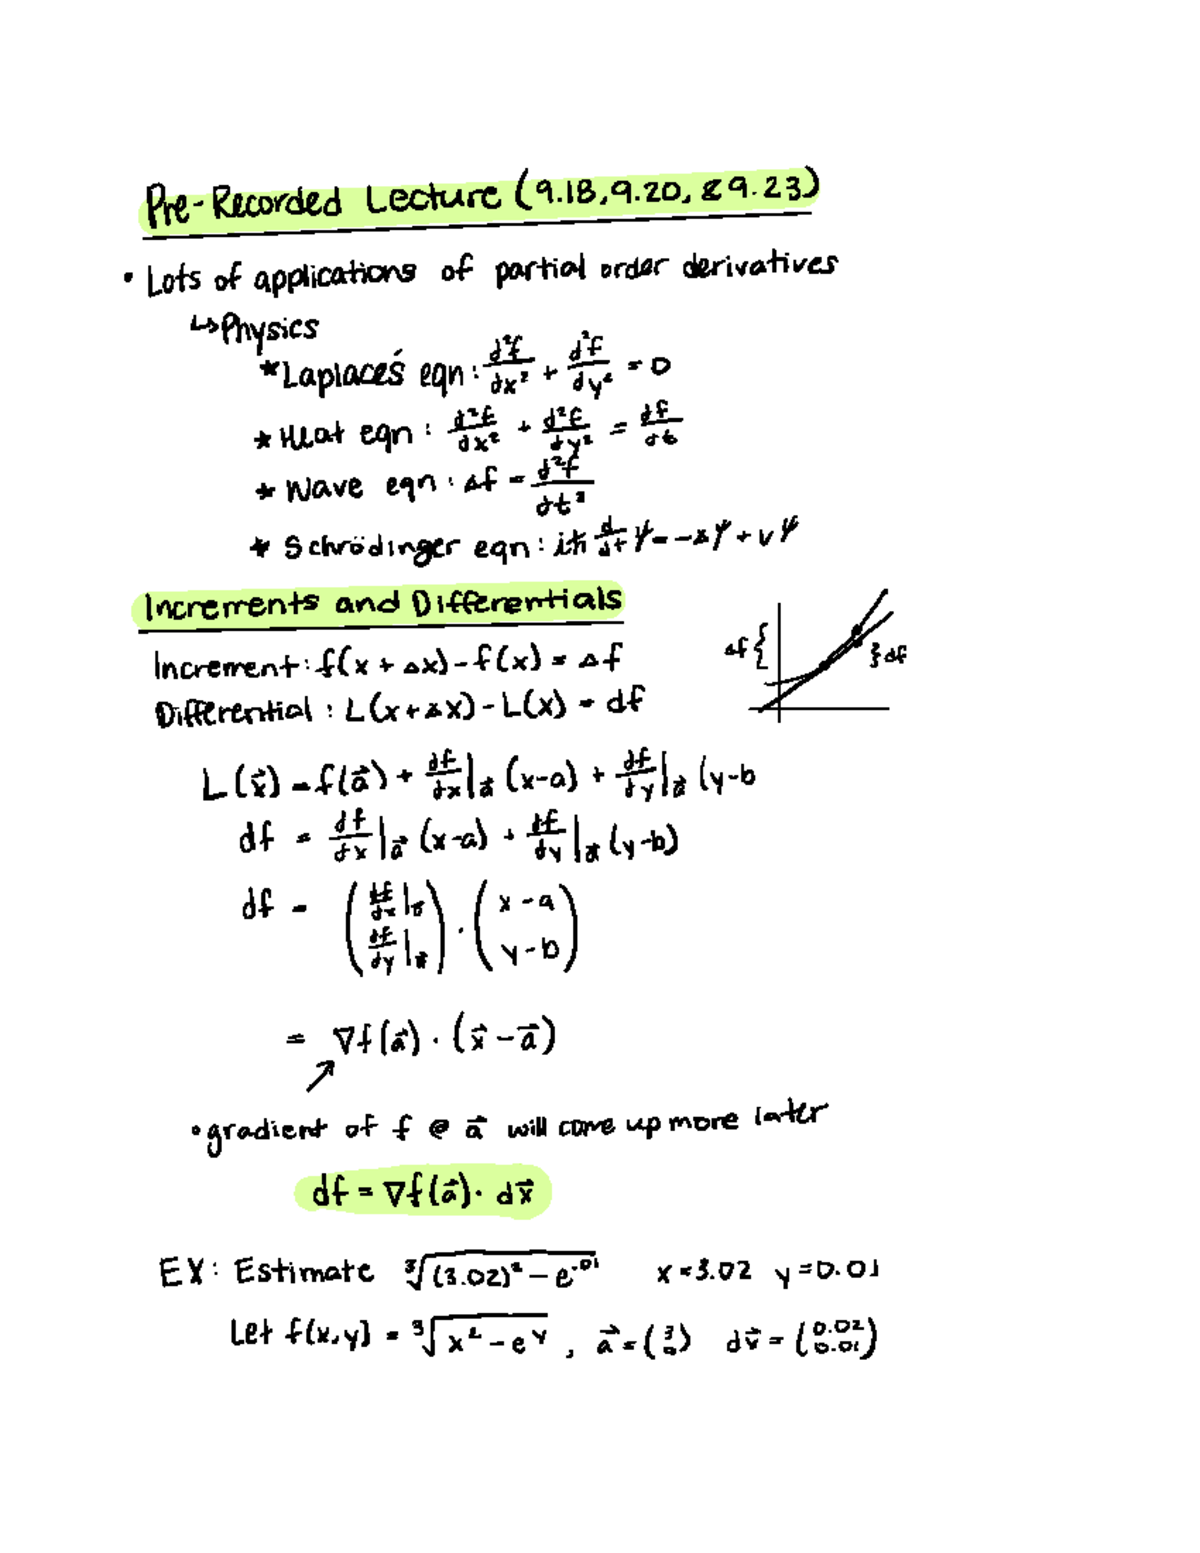 Pre-Recorded Lecture (9.18, 9.20, & 9.23)
• Lots of applications of partial order derivatives
↳ Physics
* Laplace's eqn: d²f/dx² + d²f/dy² = 0
* Heat eqn: d²f/dx² + d²f/dy² = df/dt
* Wave eqn: Δf = d²f/dt²
* Schrödinger eqn: iħ d/dt ψ = -Δψ + vψ
Increments and Differentials
Increment: f(x + Δx) - f(x) = Δf
Differential: L(x + Δx) - L(x) = df
Δf { } df
L(x⃗) = f(a⃗) + df/dx|a⃗ (x-a) + df/dy|a⃗ (y-b
df = df/dx|a⃗ (x-a) + df/dy|a⃗ (y-b)
df = (df/dx|a⃗ df/dy|a⃗) · (x-a y-b)
= ∇f(a⃗) · (x⃗ - a⃗)
• gradient of f @ a⃗ will come up more later
df = ∇f(a⃗) · dx⃗
EX: Estimate ∛((3.02)² - e^.01) x = 3.02 y = 0.01
Let f(x,y) = ∛(x² - e^y), a⃗ = (3 0) dv⃗ = (0.02 0.01)